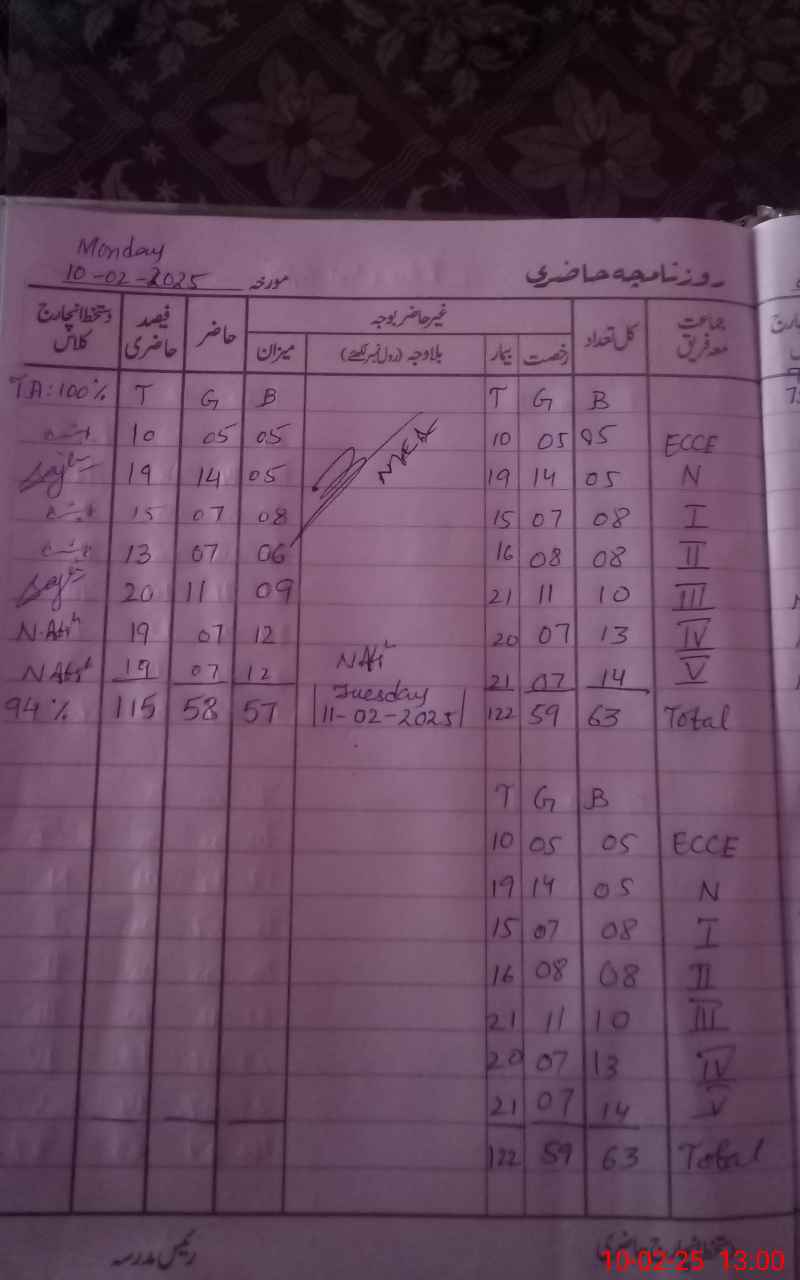 Monday
10-02-2025 مورخہ روزنامچہ حاضری
دستخط انچارج کلاس فیصد حاضری حاضر غیر حاضر بوجہ کل تعداد جماعت معہ فریق
میزان بلاوجہ (رول نمبر لکھئے) بیمار رخصت
TA:100% T G B T G B
10 05 05 10 05 05 ECCE
19 14 05 19 14 05 N
15 07 08 15 07 08 I
13 07 06 16 08 08 II
20 11 09 21 11 10 III
19 07 12 20 07 13 IV
19 07 12 21 07 14 V
Tuesday
94% 115 58 57 11-02-2025 122 59 63 Total
T G B
10 05 05 ECCE
19 14 05 N
15 07 08 I
16 08 08 II
21 11 10 III
20 07 13 IV
21 07 14 V
122 59 63 Total
رئیس مدرسہ دستخط انچارج حاضری
10-02-25 13:00